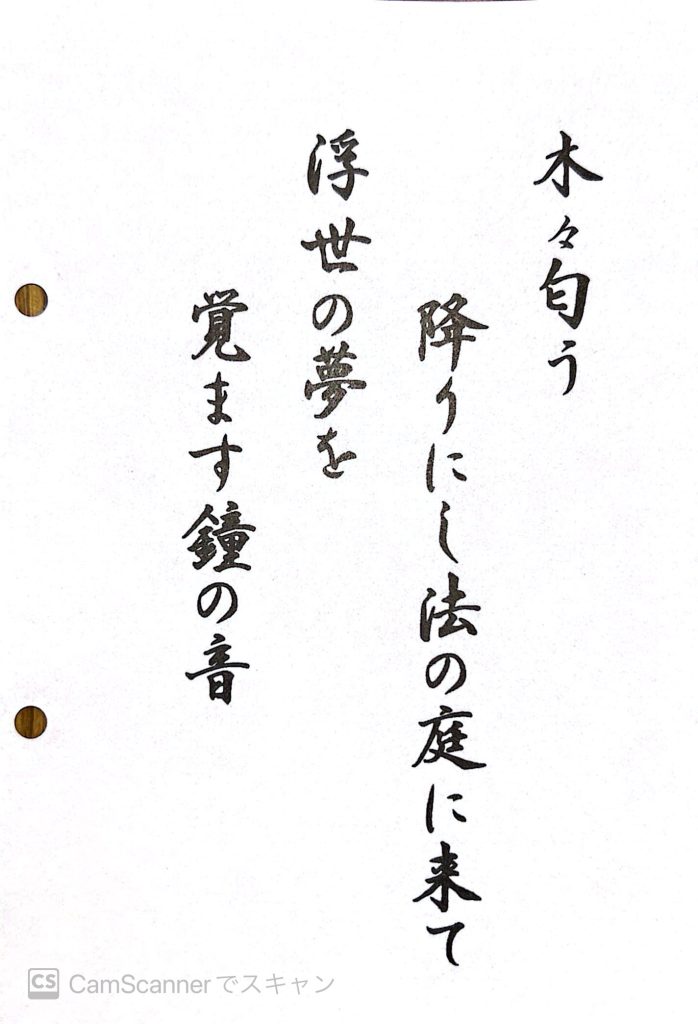 木々匂う
降りにし法の庭に来て
浮世の夢を
覚ます鐘の音
CS CamScannerでスキャン